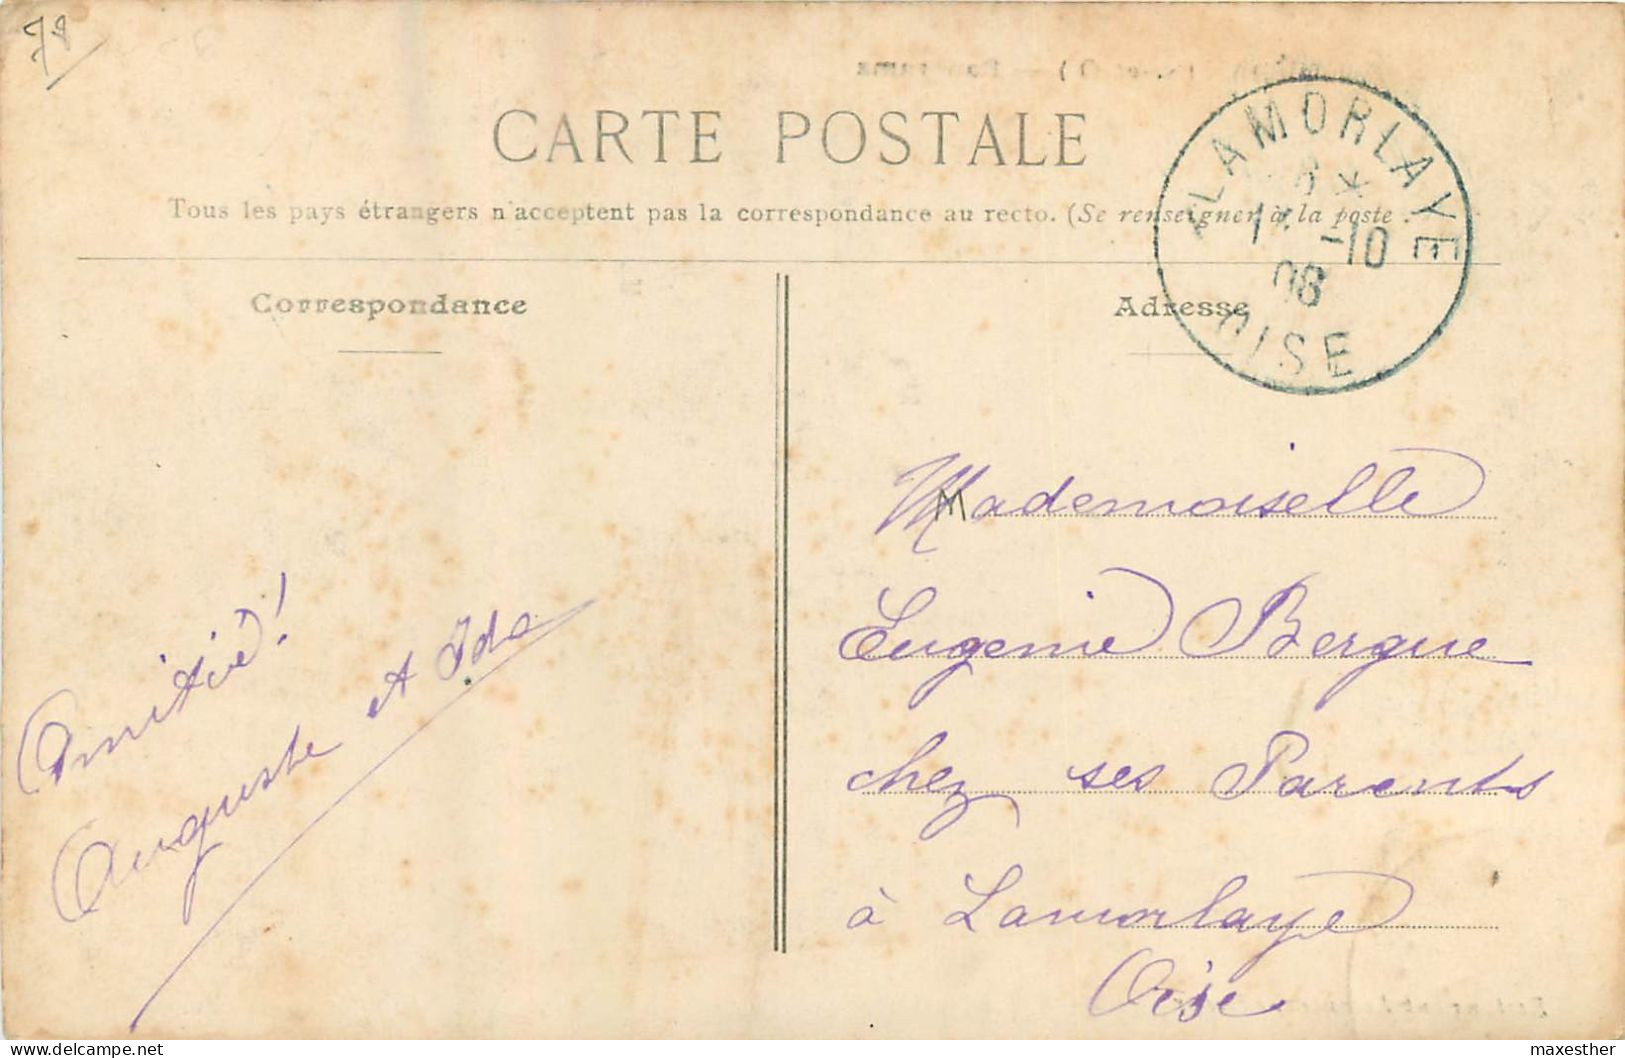 78
CARTE POSTALE
Tous les pays étrangers n'acceptent pas la correspondance au recto. (Se renseigner à la poste.
Correspondance
Amitié!
Auguste et Ida
Adresse
LAMORLAYE
-10
08
OISE
Mademoiselle
Eugenie Bergue
chez ses Parents
à Lamorlaye
Oise
maxesther